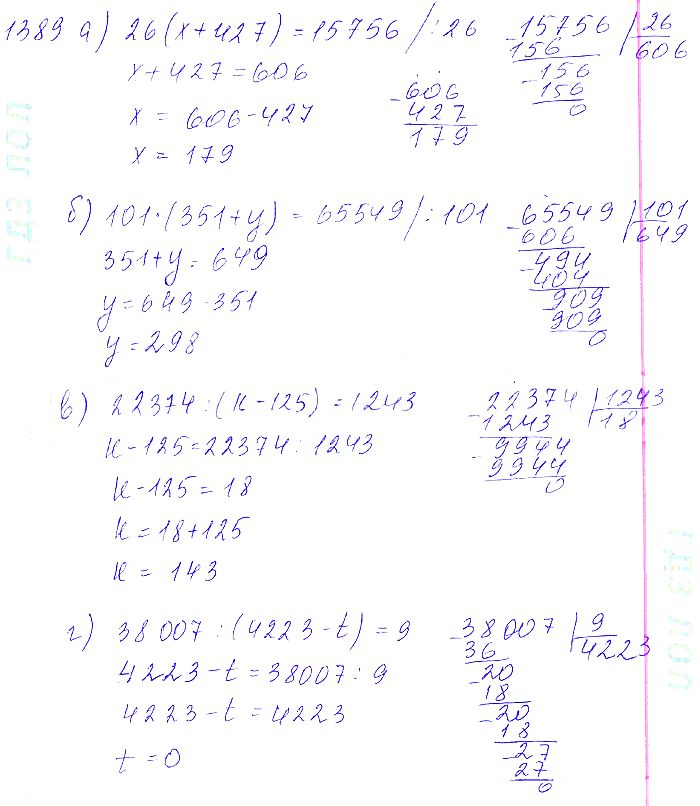 1389 а) 26(x+427)=15756 /:26
x+427=606
x = 606-427
x = 179
-606
427
179
-15756 | 26
156 606
-156
156
0
б) 101·(351+y) = 65549/:101
351+y=649
y=649-351
y=298
-65549 | 101
606 649
-494
404
909
909
0
в) 22374:(к-125)=1243
к-125=22374:1243
к-125=18
к=18+125
к= 143
-22374 | 1243
1243 18
-9944
9944
0
г) 38007:(4223-t)=9
4223-t=38007:9
4223-t=4223
t=0
-38007 | 9
36 4223
-20
18
-20
18
-27
27
0
ГДЗ ЛОЛ
ГДЗ ЛОЛ